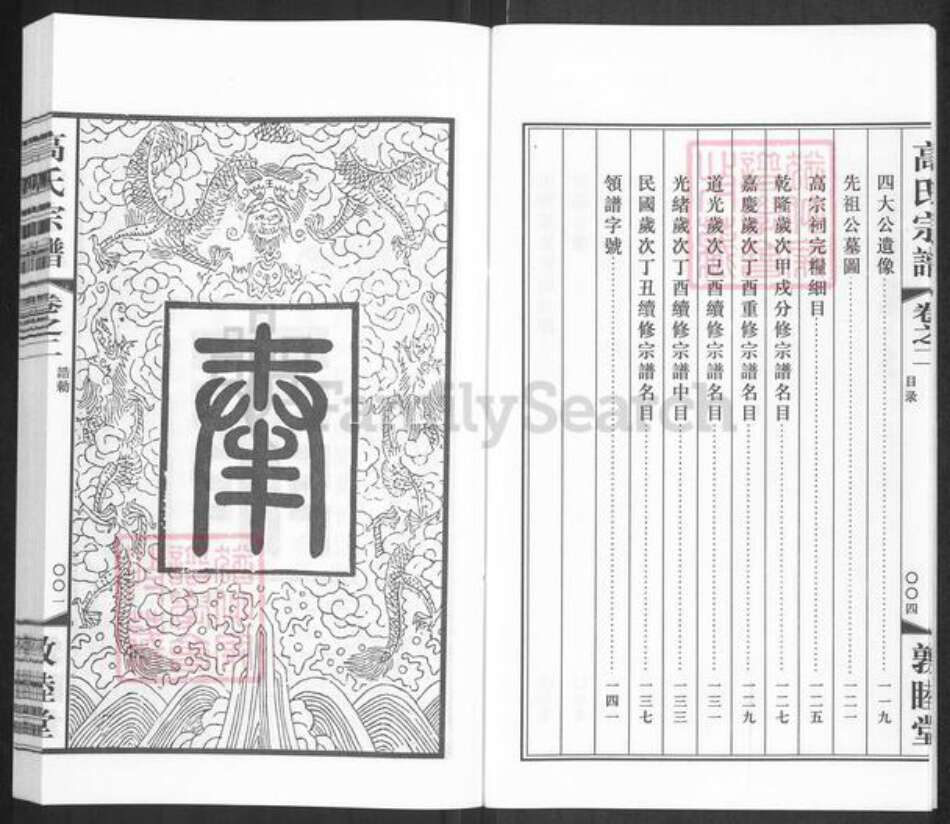 高氏宗譜
卷之二
目录
〇〇四
敦睦堂
四大公遺像 一一九
先祖公墓圖 一二一
高宗祠完糧細目 一二五
乾隆歲次甲戍分修宗譜名目 一二七
嘉慶歲次丁酉重修宗譜名目 一二九
道光歲次己酉續修宗譜名目 一三一
光緒歲次丁酉續修宗譜中目 一三三
民國歲次丁丑續修宗譜名目 一三七
領譜字號 一四一
奉
高氏宗譜
卷之二
誥勅
〇〇一
敦睦堂
FamilySearch